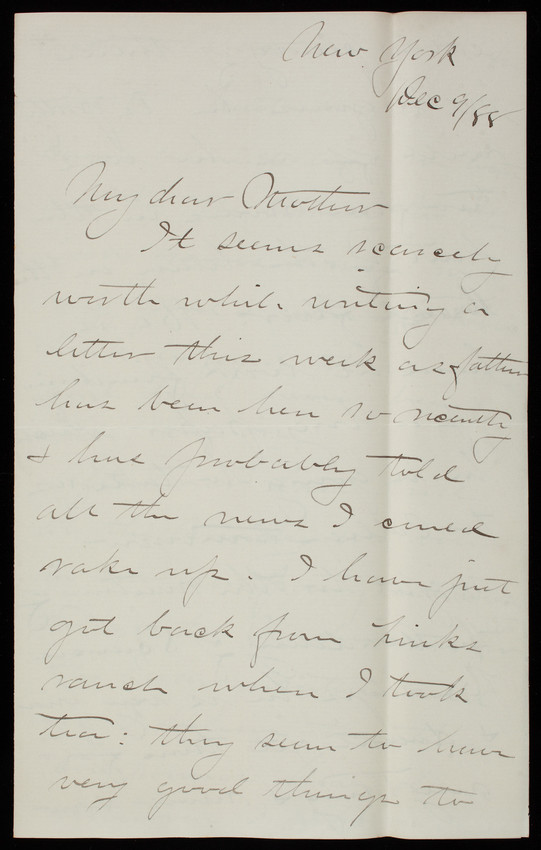 New York
Dec 9/88
My dear Mother
It seems scarcely
worth while writing a
letter this week as father
has been here so recently
& has probably told
all the news I could
rake up. I have just
got back from Hinks
ranch where I took
tea: they seem to have
very good things to